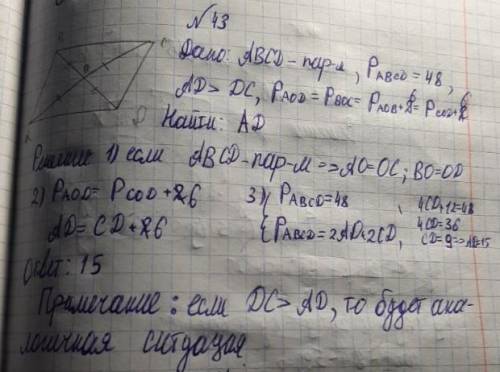 № 43
Дано: ABCD - пар-м, P_ABCD = 48,
AD > DC, P_AOD = P_BOC = P_AOB + 6 = P_COD + 6
Найти: AD
Решение 1) если ABCD - пар-м => AO=OC; BO=OD
2) P_AOD = P_COD + 6
AD = CD + 6
3) { P_ABCD = 48
{ P_ABCD = 2AD+2CD,
4CD+12=48
4CD=36
CD=9 => AD=15
Ответ: 15
Примечание: если DC > AD, то будет ана-
логичная ситуация